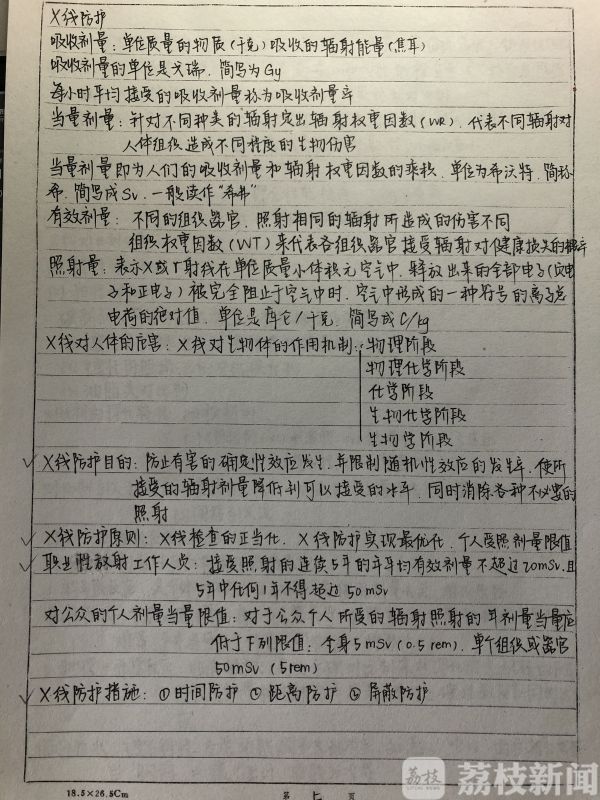 X线防护
吸收剂量：单位质量的物质（千克）吸收的辐射能量（焦耳）
吸收剂量的单位是戈瑞．简写为Gy
每小时平均接受的吸收剂量称为吸收剂量率
当量剂量：针对不同种类的辐射定出辐射权重因数（WR）．代表不同辐射对
人体组织造成不同程度的生物伤害
当量剂量即为人们的吸收剂量和辐射权重因数的乘积．单位为希沃特．简称
希．简写成Sv．一般读作“希弗”
有效剂量：不同的组织器官．照射相同的辐射所造成的伤害不同
组织权重因数（WT）来代表各组织器官接受辐射对健康损失的概率
照射量：表示X或γ射线在单位质量小体积元空气中．释放出来的全部电子（负电
子和正电子）被完全阻止于空气中时．空气中形成的一种符号的离子总
电荷的绝对值．单位是库仑/千克．简写成C/kg
X线对人体的危害：X线对生物体的作用机制：物理阶段
物理化学阶段
化学阶段
生物化学阶段
生物学阶段
✓X线防护目的：防止有害的确定性效应发生．并限制随机性效应的发生率．使所
接受的辐射剂量降低到可以接受的水平．同时消除各种不必要的
照射
✓X线防护原则：X线检查的正当化．X线防护实现最优化．个人受照剂量限值
✓职业性放射工作人员：接受照射的连续5年的年平均有效剂量不超过20mSv．且
5年中任何1年不得超过50mSv
对公众的个人剂量当量限值：对于公众个人所受的辐射照射的年剂量当量应
低于下列限值：全身5mSv（0.5rem）．单个组织或器官
50mSv（5rem）
✓X线防护措施：①时间防护 ②距离防护 ③屏蔽防护
18.5×26.5Cm 第 七 页
荔枝 荔枝新闻
LITCHI NEWS